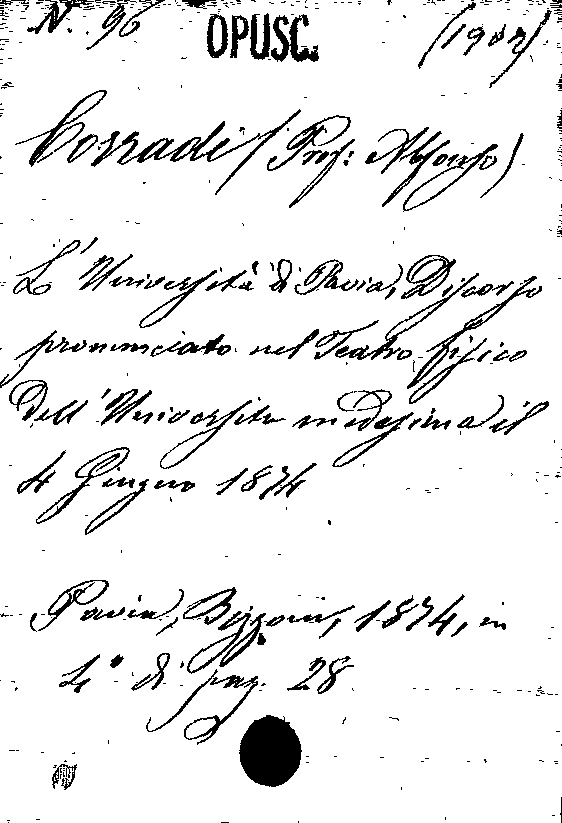 N. 96 OPUSC. (1907)
Corradi (Prof: Alfonso)
L'Università di Pavia, Discorso
pronunciato nel Teatro fisico
dell'Università medesima il
4 Giugno 1874
Pavia, Bizzoni, 1874, in
4° di pag. 28